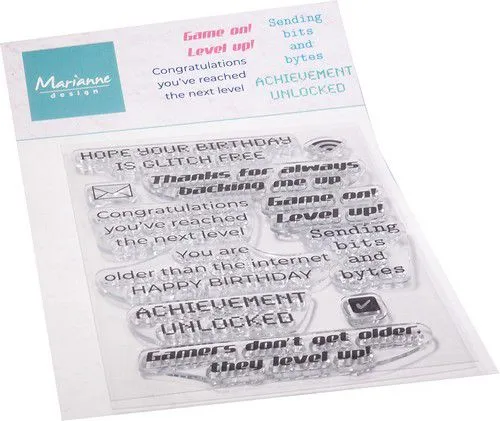 Marianne
design
Game on!
Level up!
Congratulations
you've reached
the next level
Sending
bits
and
bytes
ACHIEVEMENT
UNLOCKED
HOPE YOUR BIRTHDAY
IS GLITCH FREE
Thanks for always
backing me up
Congratulations
you've reached
the next level
Game on!
Level up!
Sending
bits
and
bytes
You are
older than the internet
HAPPY BIRTHDAY
ACHIEVEMENT
UNLOCKED
Gamers don't get older,
they level up!